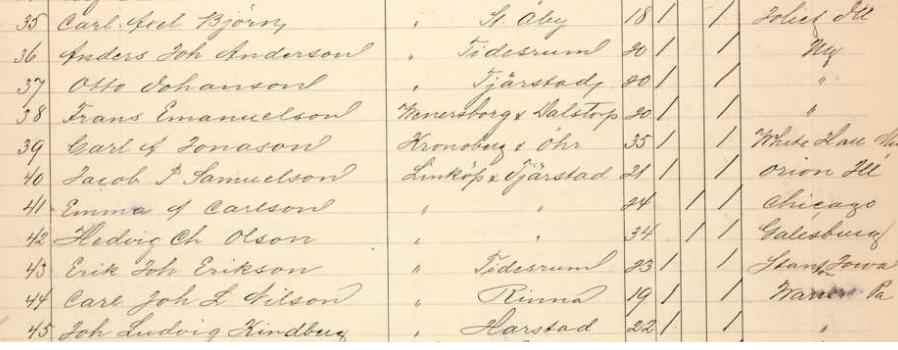 35 Carl Axel Björn „ St. Åby 18 / / Joliet Ill
36 Anders Joh Anderson „ Tidesrum 20 / / Ny
37 Otto Johanson „ Tjärstad 20 / / „
38 Frans Emanuelson Wenersborg & Dalstorp 20 / / „
39 Carl A Jonason Kronoberg & Öhr 35 / / White
40 Jacob P Samuelson Linköp & Tjärstad 21 / / Orion Ill
41 Emma Carlson „ „ 24 / / Chicago
42 Hedvig Ch Olson „ „ 34 / / Galesburg
43 Erik Joh Erikson „ Tidesrum 23 / / Iowa
44 Carl Joh L Nilson „ Rinna 19 / / Pa
45 Joh Ludvig Kindberg „ Harstad 22 / / „